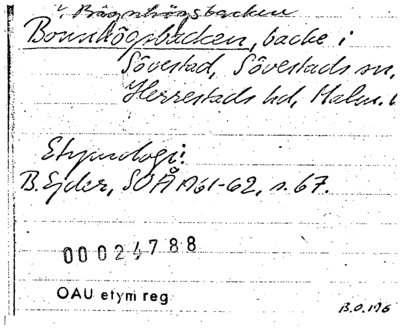 Bågenhögsbacken
Bonnhögsbacken, backe i
Sövestad, Sövestads sn,
Herrestads hd, Malm. l
Etymologi:
B. Ejder, SOÅ 1961-62, s. 67.
00024788
OAU etym reg
B.O. 196